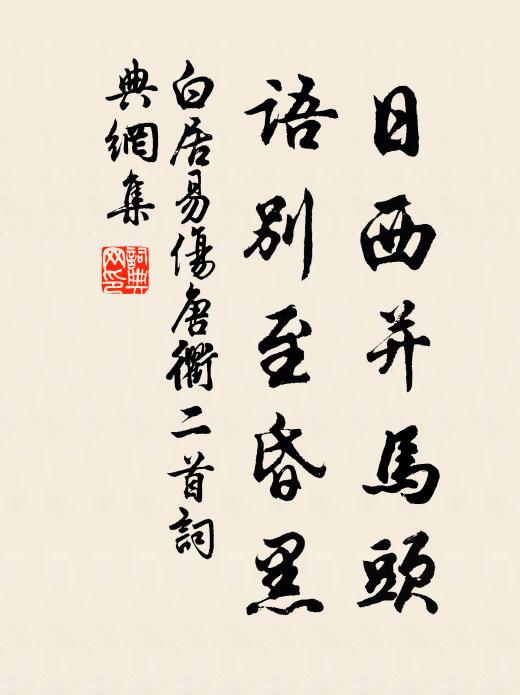 日西并馬頭
語別至昏黑
白居易傷唐衢二首詞
典網集
詞典網印